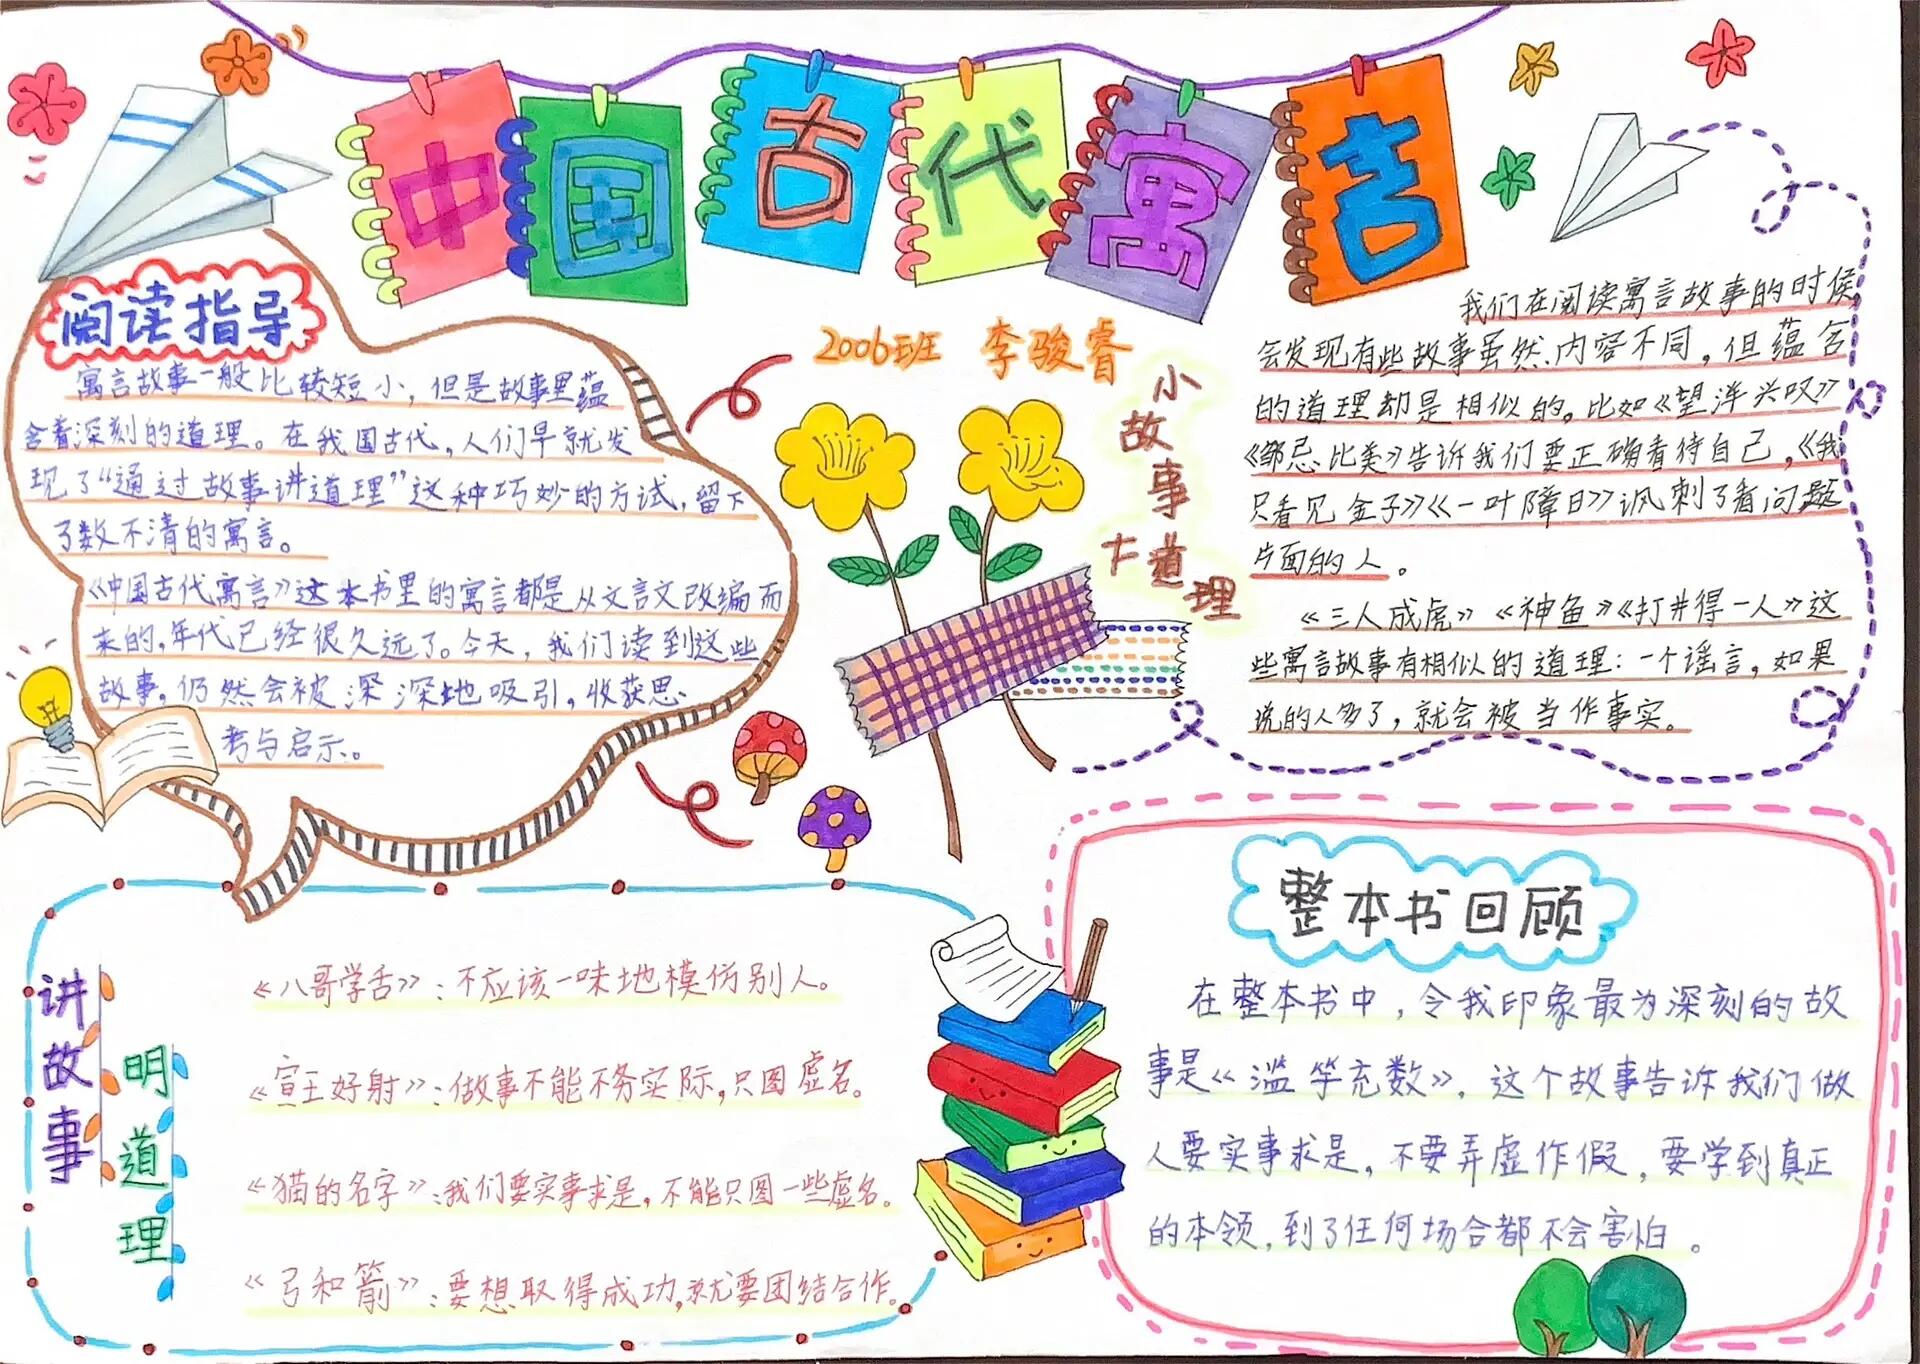 中国古代寓言
2006班 李骏睿
阅读指导
寓言故事一般比较短小，但是故事里蕴
含着深刻的道理。在我国古代，人们早就发
现了“通过故事讲道理”这种巧妙的方试，留下
了数不清的寓言。
《中国古代寓言》这本书里的寓言都是从文言文改编而
来的，年代已经很久远了。今天，我们读到这些
故事，仍然会被深深地吸引，收获思
考与启示。
小故事大道理
我们在阅读寓言故事的时候，
会发现有些故事虽然内容不同，但蕴含
的道理却是相似的。比如《望洋兴叹》
《邹忌比美》告诉我们要正确看待自己，《我
只看见金子》《一叶障目》讽刺了看问题
片面的人。
《三人成虎》《神鱼》《打井得一人》这
些寓言故事有相似的道理：一个谣言，如果
说的人多了，就会被当作事实。
讲故事
明道理
《八哥学舌》：不应该一味地模仿别人。
《宣王好射》：做事不能不务实际，只图虚名。
《猫的名字》：我们要实事求是，不能只图一些虚名。
《弓和箭》：要想取得成功，就要团结合作。
整本书回顾
在整本书中，令我印象最为深刻的故
事是《滥竽充数》，这个故事告诉我们做
人要实事求是，不要弄虚作假，要学到真正
的本领，到了任何场合都不会害怕。